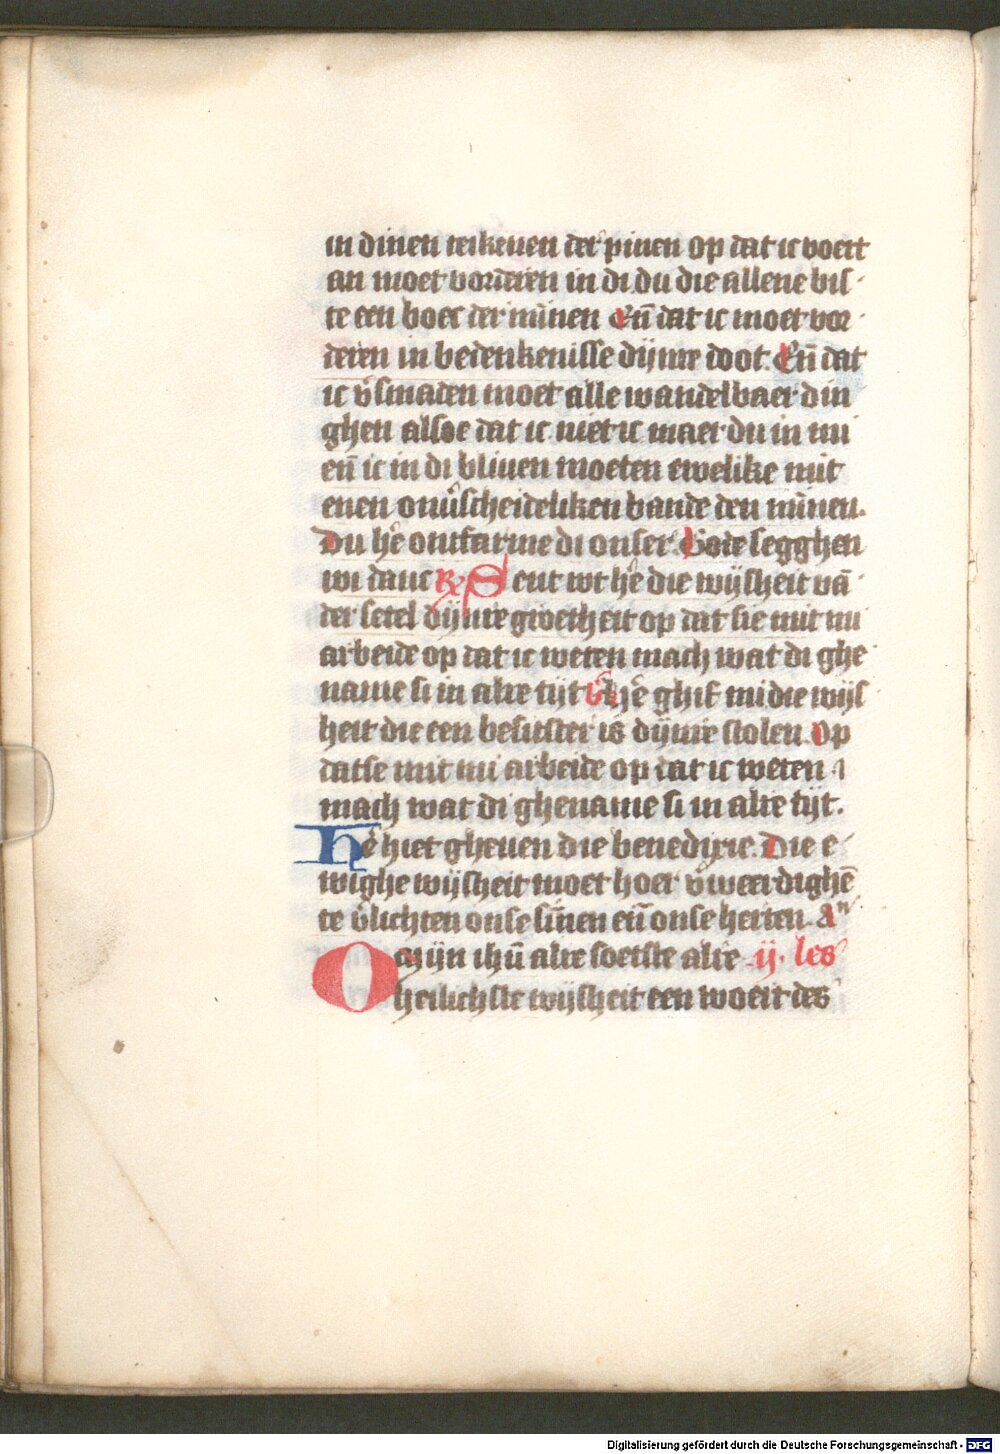 in dinen teikenen der pinen op dat ic voert
an moet vorderen in di du die allene bis
te een boec der mīnen Eñ dat ic moet vor
deren in bedenkenisse dijnre doot. Eñ dat
ic v̄smaden moet alle wandelbaer din
ghen alsoe dat ic niet ic maer du in mi
eñ ic in di bliuen moeten ewelike mit
enen onūscheideliken bande den mīnen.
Du he͛ ontfarme di onser. Gode segghen
wi danc ℟ Sent wt he͛ die wijsheit vā
der setel dijnre groetheit op dat sie mit mi
arbeide op dat ic weten mach wat di ghe
name si in alre tijt ℣ he͛ ghif mi die wijs
heit die een besitster is dijnre stolen. Op
datse mit mi arbeide op dat ic weten
mach wat di ghename si in alre tijt.
He͛ hiet gheuen die benedixie. Die e
wighe wijsheit moet hoer v̄weerdighē
te v̄lichten onse sīnen eñ onse herten. Aⁿ
O mijn ihū alre soetste alre .ij. les
heilichste wijsheit een woert des
Digitalisierung gefördert durch die Deutsche Forschungsgemeinschaft - DFG